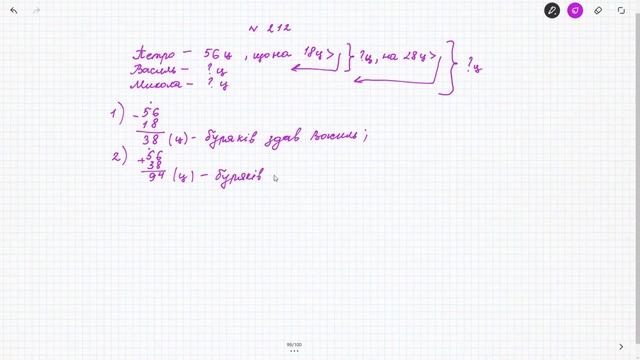 N 212
Петро – 56 ц, що на 18 ц > } ? ц, на 28 ц > } ? ц
Василь – ? ц
Микола – ? ц
1) - 56
18
38 (ц) - буряків здав Василь;
2) + 56
38
94 (ц) - буряків
99/100